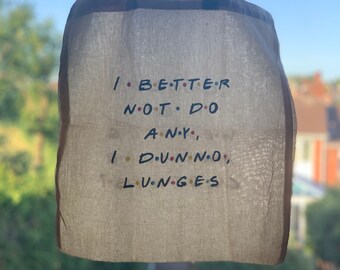 I·BETTER
N·O·T·DO
A·N·Y,
I·DUNN·O,
L·U·N·G·E·S